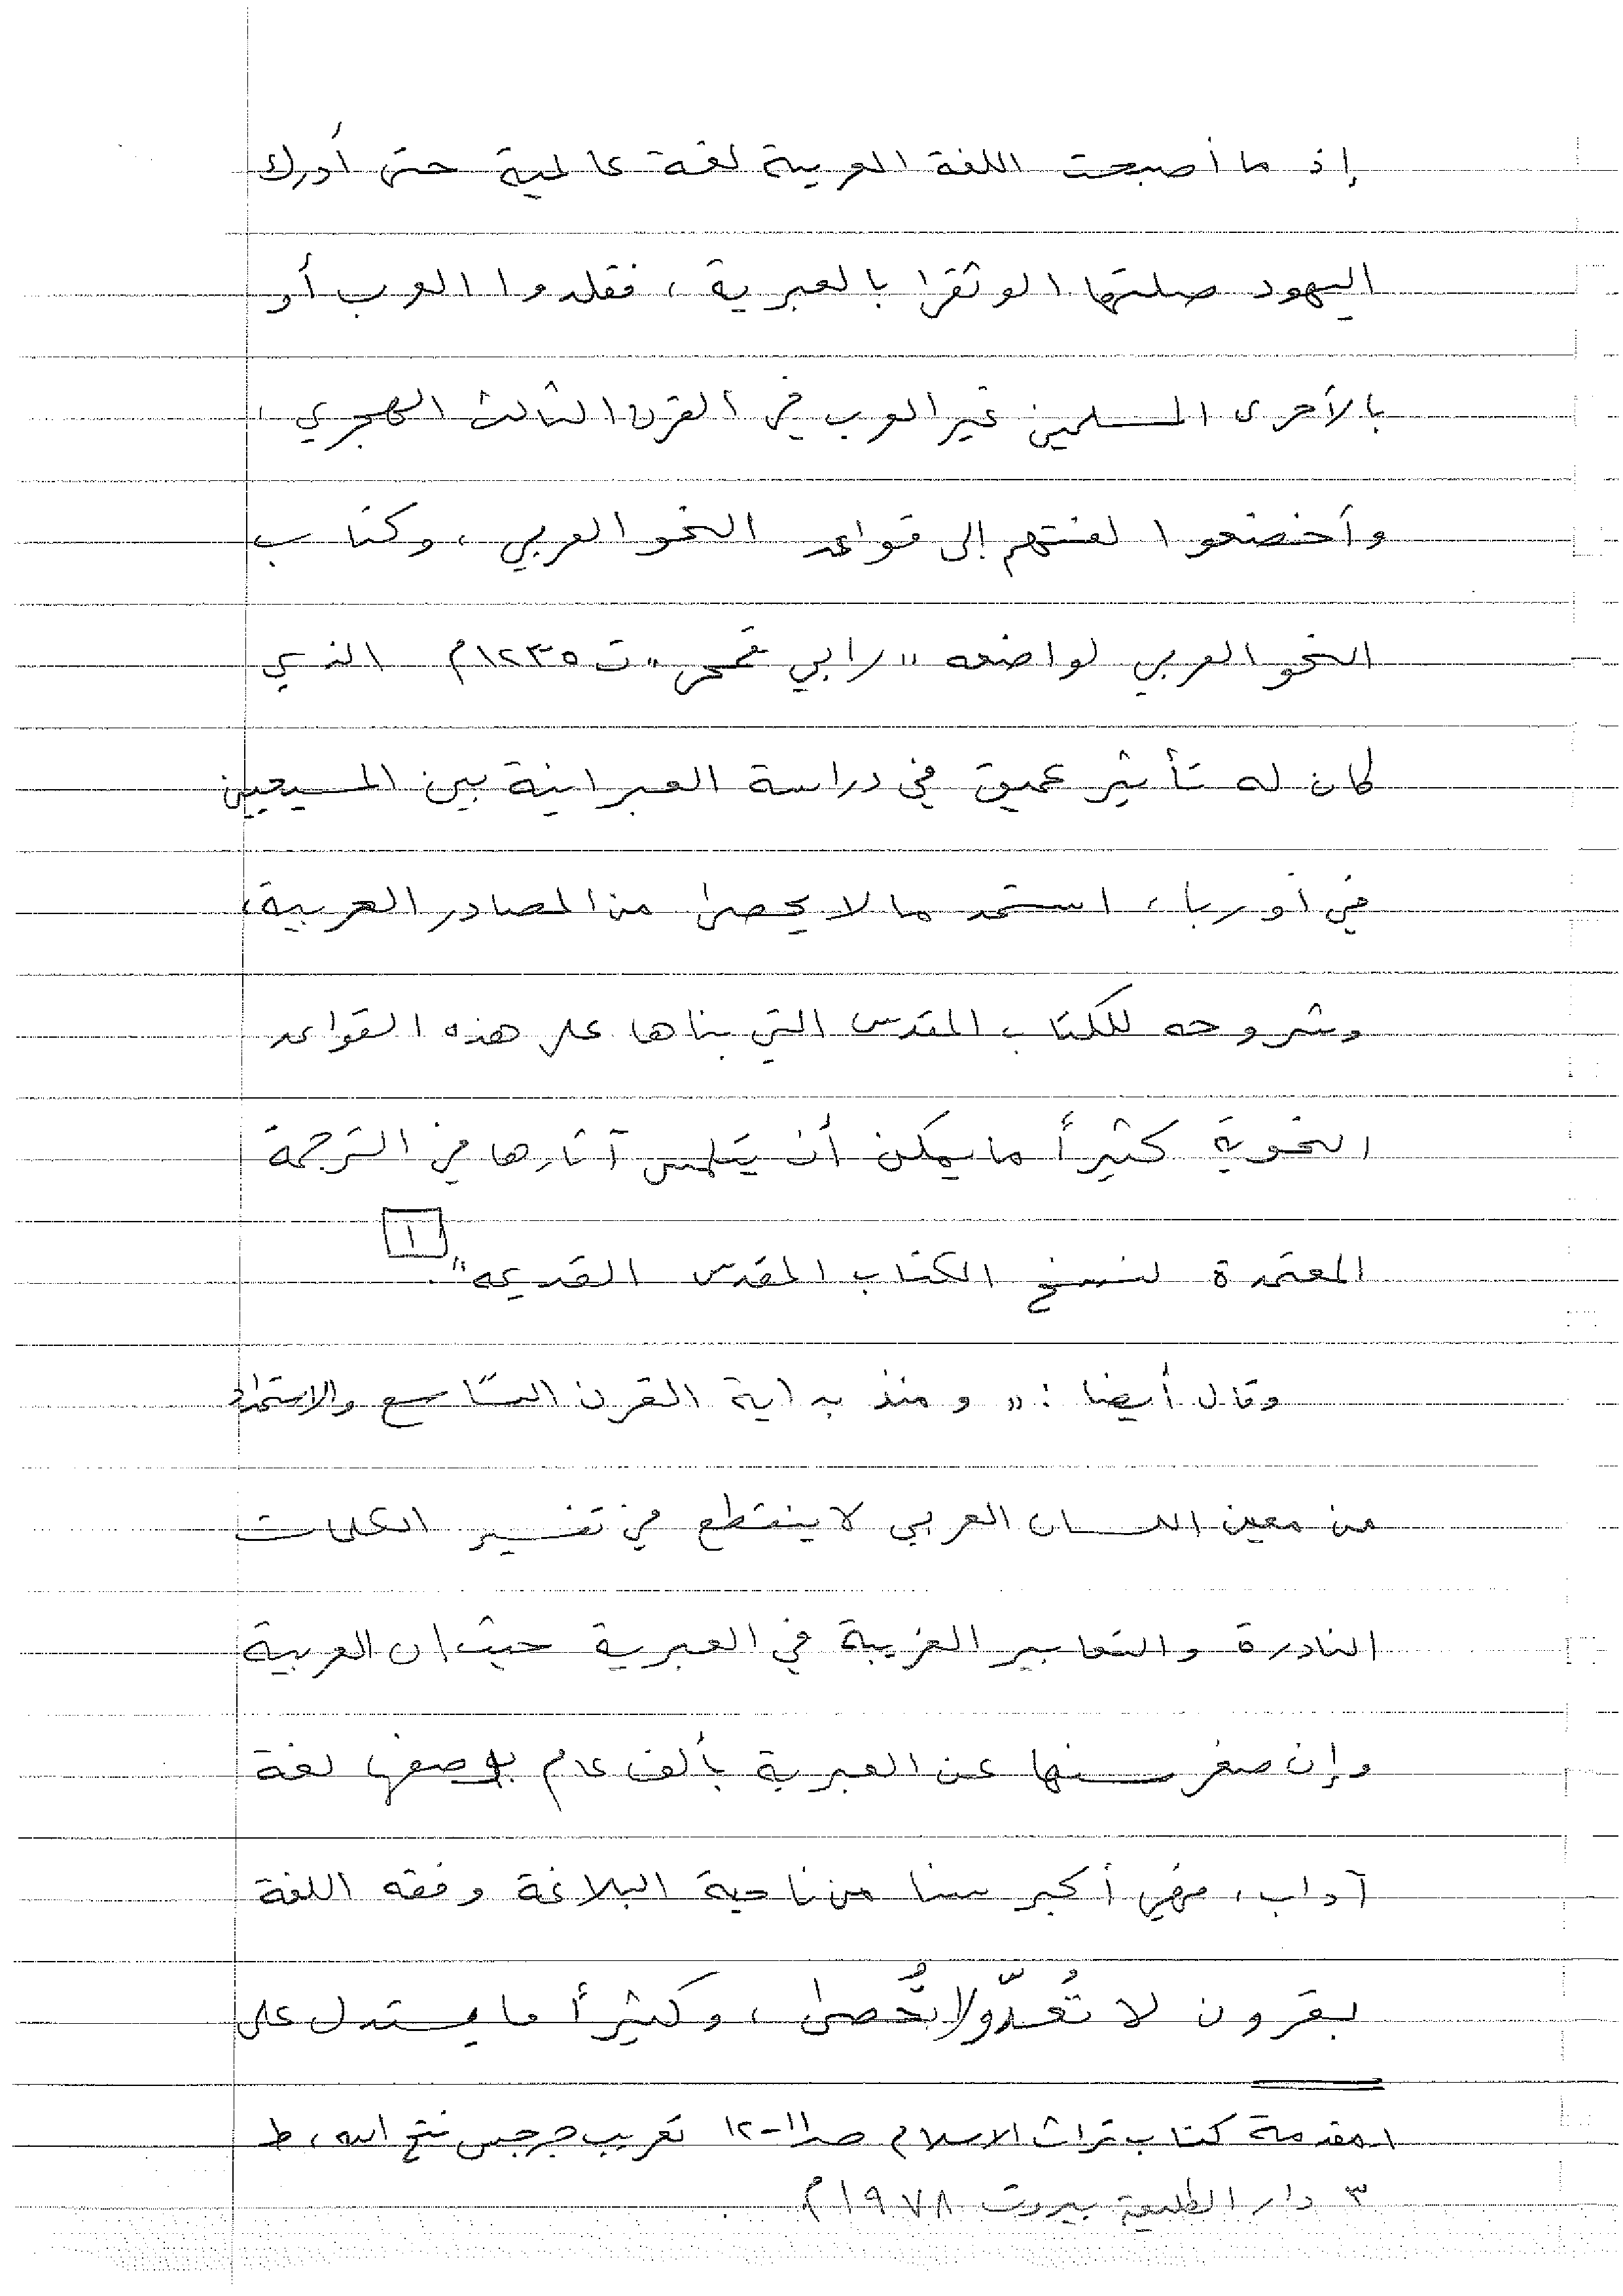 إذ ما أصبحت اللغة العربية لغة عالمية حتى أدرك
اليهود صلتها الوثقى بالعبرية، فقلدوا العرب أو
بالأحرى المسلمين غير العرب في القرن الثالث الهجري،
وأخضعوا لغتهم إلى قواعد النحو العربي، وكتاب
النحو العربي لواضعه "رابي قمحي" ت ١٢٣٥م الذي
كان له تأثير عميق في دراسة العبرانية بين المسيحيين
في أوربا، استمد ما لا يحصى من المصادر العربية،
وشروحه للكتاب المقدس التي بناها على هذه القواعد
النحوية كثيراً ما يمكن أن يتلمس آثارها في الترجمة
المعتمدة لنسخ الكتاب المقدس القديمه". [١]
وقال أيضا: "ومنذ بداية القرن التاسع والاستمداد
من معين اللسان العربي لا ينقطع في تفسير الكلمات
النادرة والتعابير الغريبة في العبرية حيث ان العربية
وإن صغر سنها عن العبرية بألف عام بوصفها لغة
آداب، فهي أكبر سنا من ناحية البلاغة وفقه اللغة
بقرون لا تُعدّ ولا تُحصى، وكثيراً ما يستدل على
١ـ مقدمة كتاب تراث الاسلام صـ١١-١٢ تعريب جرجس فتح الله، ط
٣ دار الطليعة بيروت ١٩٧٨م